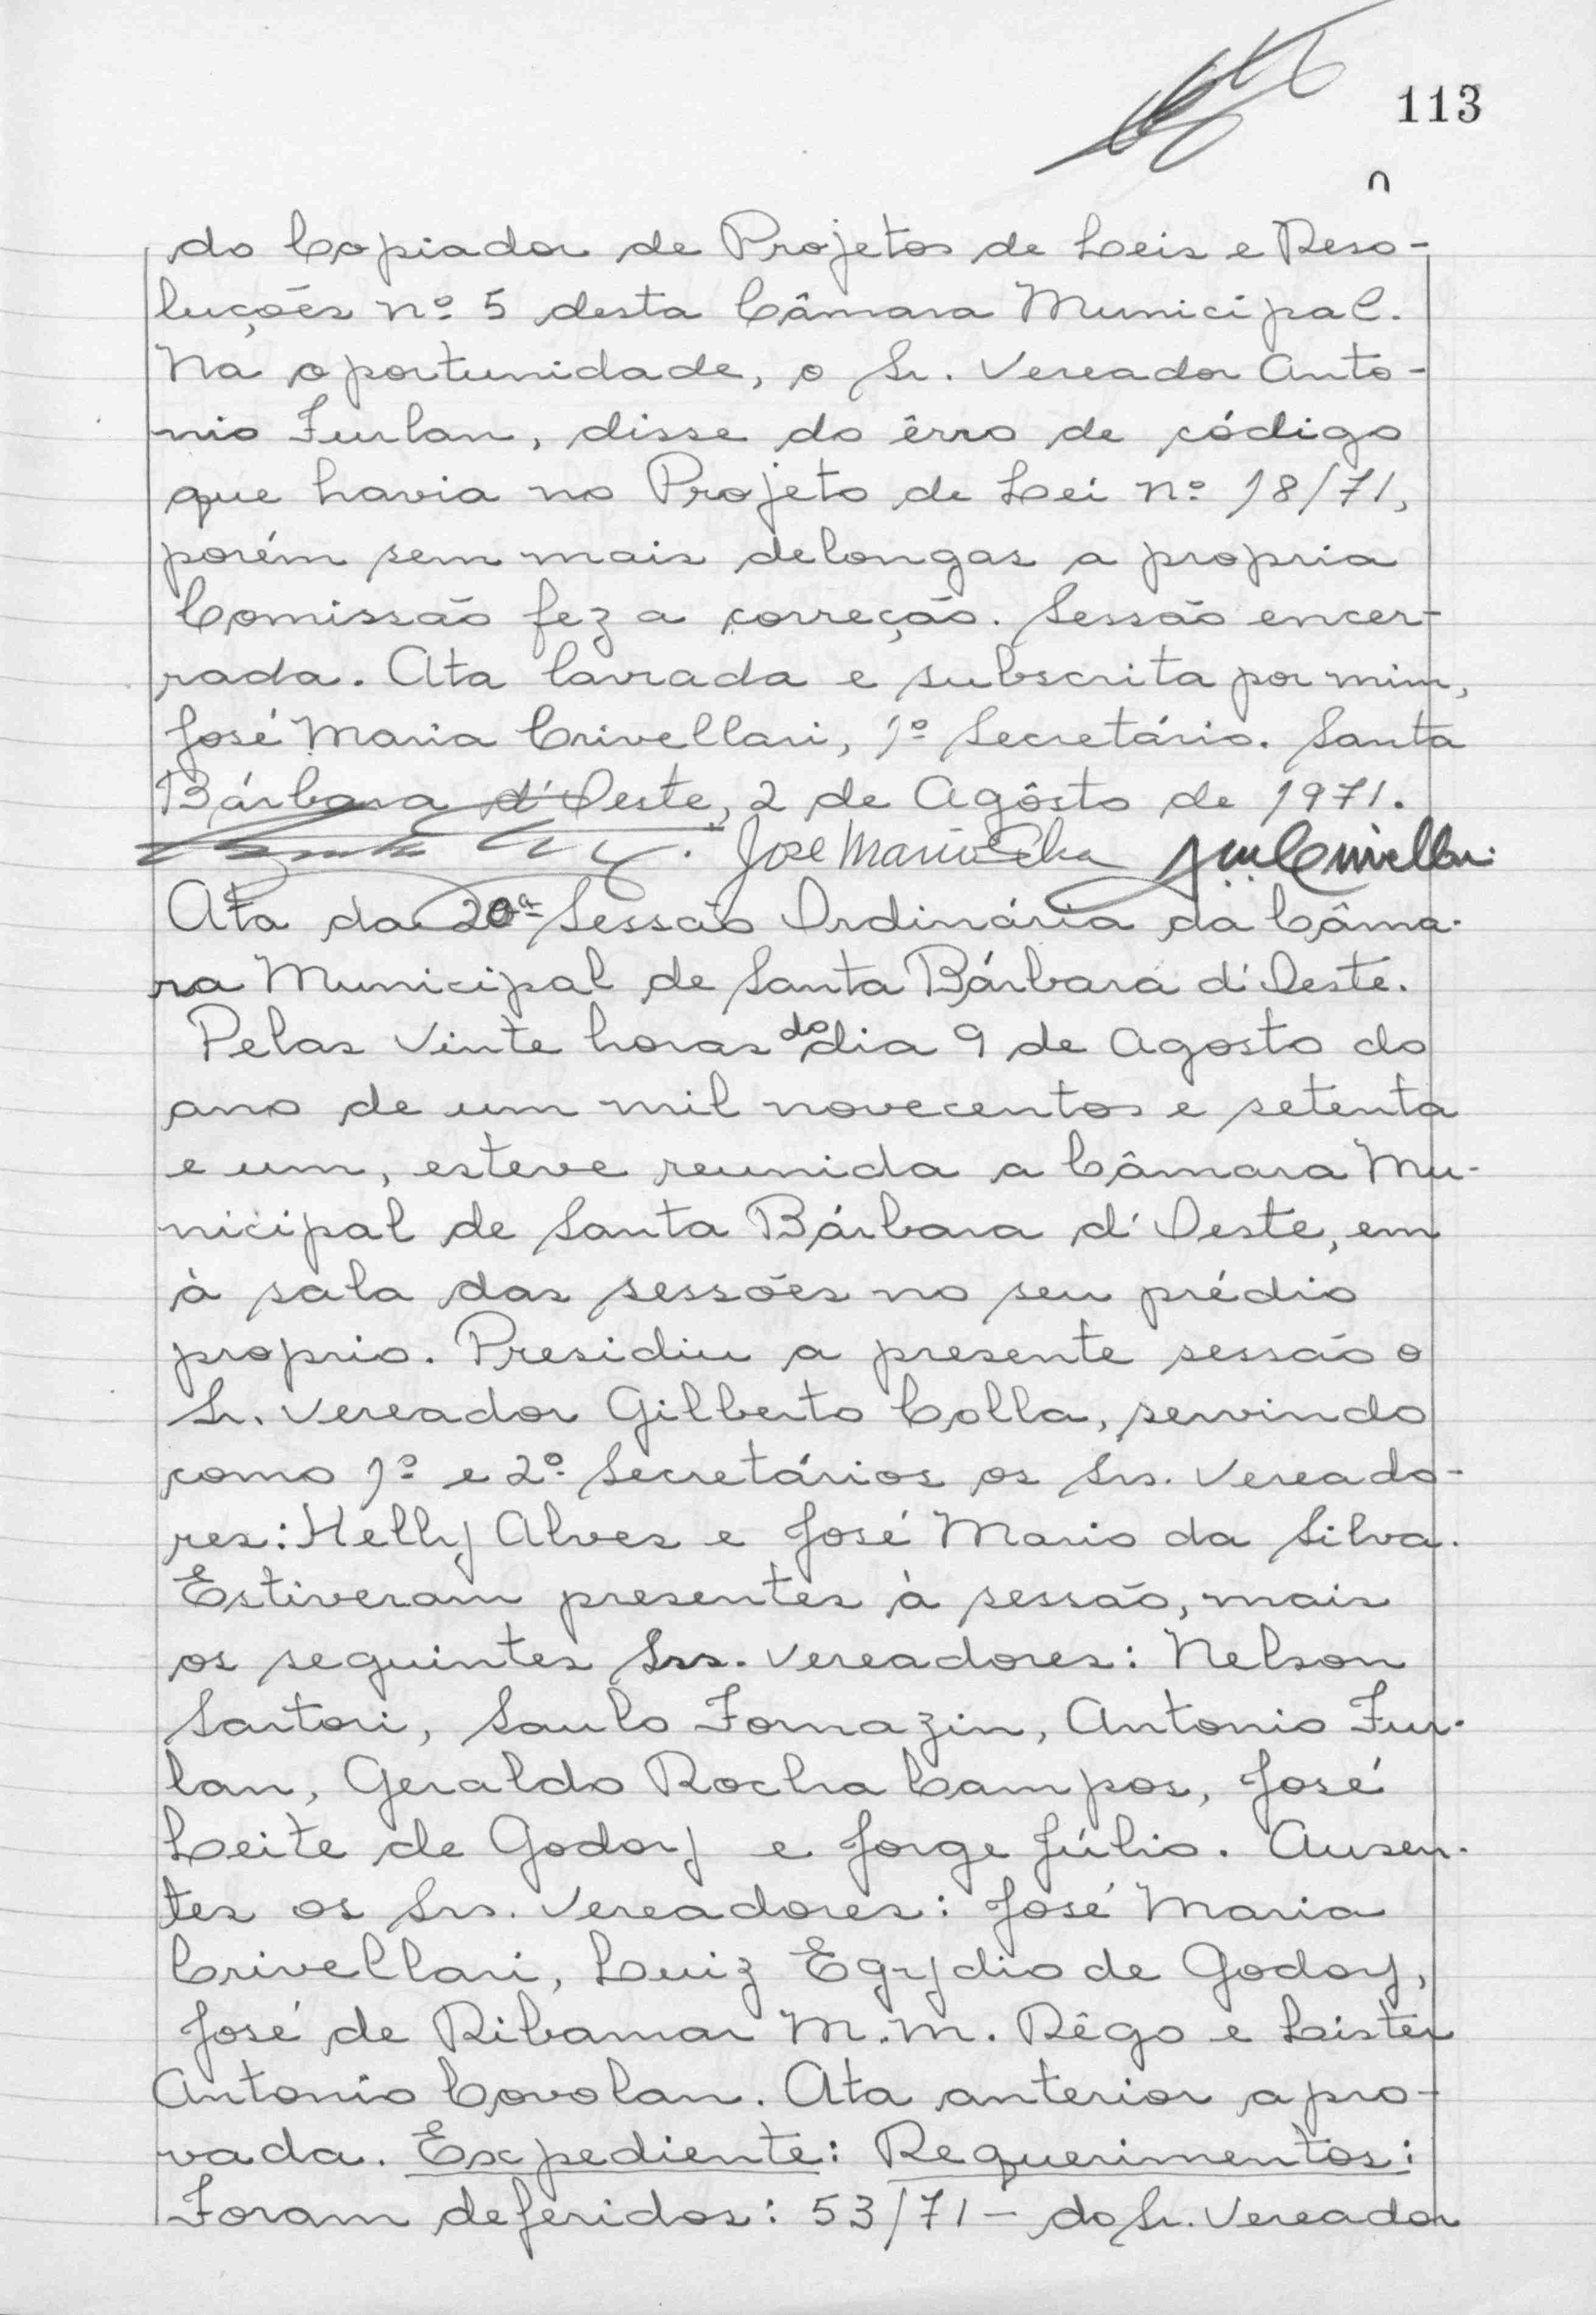 113
do Copiador de Projetos de Leis e Reso-
luções nº 5 desta Câmara Municipal.
Na oportunidade, o Sr. Vereador Anto-
nio Furlan, disse do êrro de código
que havia no Projeto de Lei nº 18/71,
porém sem mais delongas a propria
Comissão fez a correção. Sessão encer-
rada. Ata lavrada e subscrita por mim,
José Maria Crivellari, 1º Secretário. Santa
Bárbara d'Oeste, 2 de Agôsto de 1971.
José Mario Silva
Ata da 20ª Sessão Ordinária da Câma-
ra Municipal de Santa Bárbara d'Oeste.
Pelas vinte horas do dia 9 de Agosto do
ano de um mil novecentos e setenta
e um, esteve reunida a Câmara Mu-
nicipal de Santa Bárbara d'Oeste, em
à sala das sessões no seu prédio
proprio. Presidiu a presente sessão o
Sr. Vereador Gilberto Colla, servindo
como 1º e 2º Secretários os Srs. Vereado-
res: Helly Alves e José Mario da Silva.
Estiveram presentes à sessão, mais
os seguintes Srs. Vereadores: Nelson
Sartori, Saulo Fornazin, Antonio Fur-
lan, Geraldo Rocha Campos, José
Leite de Godoy e Jorge Júlio. Ausen-
tes os Srs. Vereadores: José Maria
Crivellari, Luiz Egydio de Godoy,
José de Ribamar M. M. Rêgo e Lister
Antonio Covolan. Ata anterior apro-
vada. Expediente: Requerimentos:
Foram deferidos: 53/71 - do Sr. Vereador